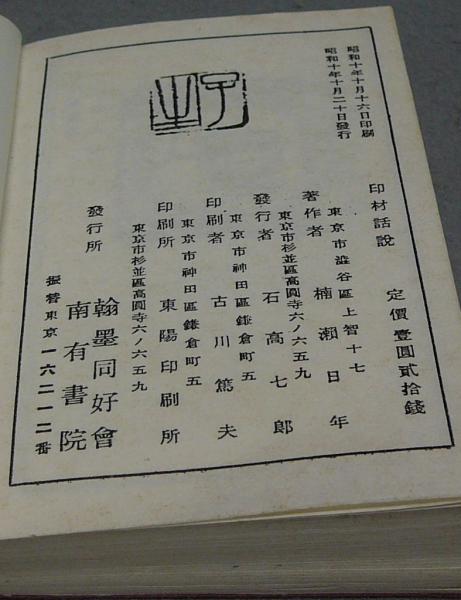 昭和十年十月十六日印刷
昭和十年十月二十日發行
印材話說
定價壹圓貳拾錢
東京市澁谷區上智十七
著作者 楠瀬日年
東京市杉並區高圓寺六ノ六五九
發行者 石高七郎
東京市神田區鎌倉町五
印刷者 古川篤夫
東京市神田區鎌倉町五
印刷所 東陽印刷所
東京市杉並區高圓寺六ノ六五九
發行所 翰墨同好會
南有書院
振替東京一六二一二番